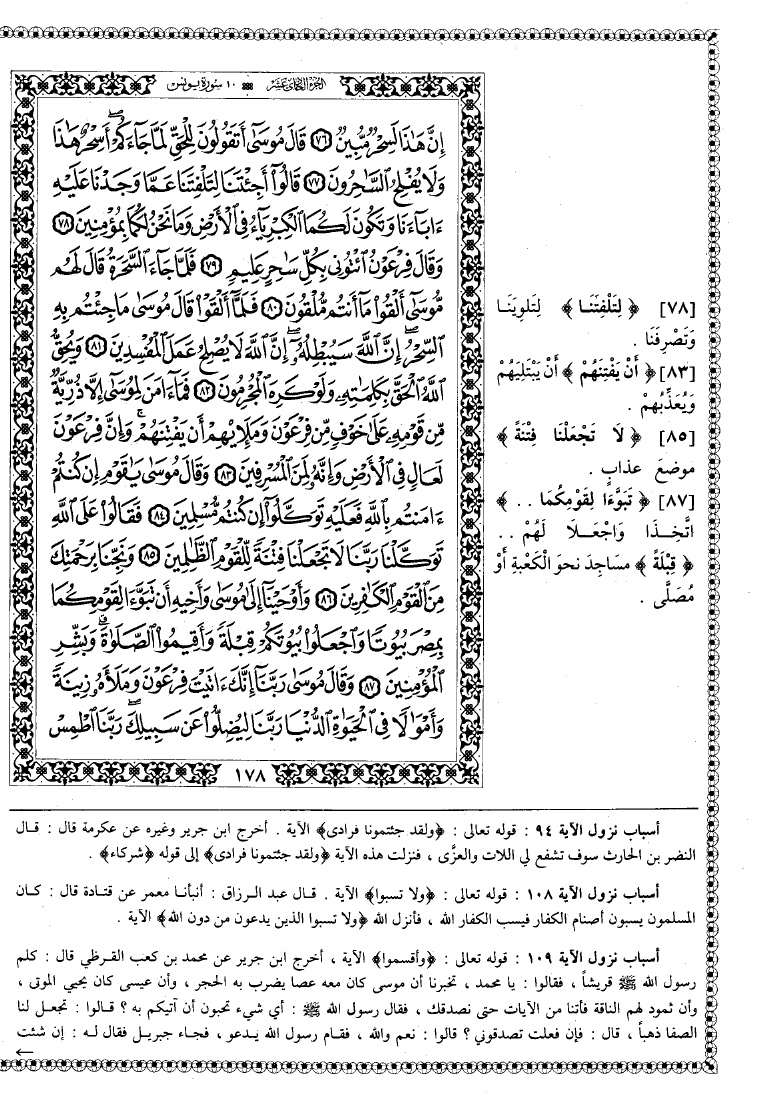 الجزء الحادي عشر ١٠ سورة يونس
إِنَّ هَٰذَا لَسِحْرٌ مُّبِينٌ ٧٦ قَالَ مُوسَىٰٓ أَتَقُولُونَ لِلْحَقِّ لَمَّا جَآءَكُمْ ۖ أَسِحْرٌ هَٰذَا
وَلَا يُفْلِحُ ٱلسَّٰحِرُونَ ٧٧ قَالُوٓا۟ أَجِئْتَنَا لِتَلْفِتَنَا عَمَّا وَجَدْنَا عَلَيْهِ
ءَابَآءَنَا وَتَكُونَ لَكُمَا ٱلْكِبْرِيَآءُ فِى ٱلْأَرْضِ وَمَا نَحْنُ لَكُمَا بِمُؤْمِنِينَ ٧٨
وَقَالَ فِرْعَوْنُ ٱئْتُونِى بِكُلِّ سَٰحِرٍ عَلِيمٍ ٧٩ فَلَمَّا جَآءَ ٱلسَّحَرَةُ قَالَ لَهُم
مُّوسَىٰٓ أَلْقُوا۟ مَآ أَنتُم مُّلْقُونَ ٨٠ فَلَمَّآ أَلْقَوْا۟ قَالَ مُوسَىٰ مَا جِئْتُم بِهِ
ٱلسِّحْرُ ۖ إِنَّ ٱللَّهَ سَيُبْطِلُهُۥٓ ۖ إِنَّ ٱللَّهَ لَا يُصْلِحُ عَمَلَ ٱلْمُفْسِدِينَ ٨١ وَيُحِقُّ
ٱللَّهُ ٱلْحَقَّ بِكَلِمَٰتِهِۦ وَلَوْ كَرِهَ ٱلْمُجْرِمُونَ ٨٢ فَمَآ ءَامَنَ لِمُوسَىٰٓ إِلَّا ذُرِّيَّةٌ
مِّن قَوْمِهِۦ عَلَىٰ خَوْفٍ مِّن فِرْعَوْنَ وَمَلَإِي۟هِمْ أَن يَفْتِنَهُمْ ۚ وَإِنَّ فِرْعَوْنَ
لَعَالٍ فِى ٱلْأَرْضِ وَإِنَّهُۥ لَمِنَ ٱلْمُسْرِفِينَ ٨٣ وَقَالَ مُوسَىٰ يَٰقَوْمِ إِن كُنتُمْ
ءَامَنتُم بِٱللَّهِ فَعَلَيْهِ تَوَكَّلُوٓا۟ إِن كُنتُم مُّسْلِمِينَ ٨٤ فَقَالُوا۟ عَلَى ٱللَّهِ
تَوَكَّلْنَا رَبَّنَا لَا تَجْعَلْنَا فِتْنَةً لِّلْقَوْمِ ٱلظَّٰلِمِينَ ٨٥ وَنَجِّنَا بِرَحْمَتِكَ
مِنَ ٱلْقَوْمِ ٱلْكَٰفِرِينَ ٨٦ وَأَوْحَيْنَآ إِلَىٰ مُوسَىٰ وَأَخِيهِ أَن تَبَوَّءَا لِقَوْمِكُمَا
بِمِصْرَ بُيُوتًا وَٱجْعَلُوا۟ بُيُوتَكُمْ قِبْلَةً وَأَقِيمُوا۟ ٱلصَّلَوٰةَ ۗ وَبَشِّرِ
ٱلْمُؤْمِنِينَ ٨٧ وَقَالَ مُوسَىٰ رَبَّنَآ إِنَّكَ ءَاتَيْتَ فِرْعَوْنَ وَمَلَأَهُۥ زِينَةً
وَأَمْوَٰلًا فِى ٱلْحَيَوٰةِ ٱلدُّنْيَا رَبَّنَا لِيُضِلُّوا۟ عَن سَبِيلِكَ ۖ رَبَّنَا ٱطْمِسْ
١٧٨
[٧٨] ﴿ لِتَلْفِتَنَا ﴾ لِتَلوِيَنَا
وَتَصْرِفَنَا .
[٨٣] ﴿ أَنْ يَفْتِنَهُمْ ﴾ أَنْ يَبْتَلِيَهُمْ
وَيُعَذِّبُهمْ .
[٨٥] ﴿ لَا تَجْعَلْنَا فِتْنَةً ﴾
موضعَ عذابٍ .
[٨٧] ﴿ تَبَوَّءَا لِقَوْمِكُمَا . . ﴾
اتَّخِذَا وَاجْعَلَا لَهُمْ . .
﴿ قِبْلَةً ﴾ مساجِدَ نحوَ الكَعْبةِ أوْ
مُصَلًّى .
أسباب نزول الآية ٩٤ : قوله تعالى : ﴿ولقد جئتمونا فرادى﴾ الآية . أخرج ابن جرير وغيره عن عكرمة قال : قال
النضر بن الحارث سوف تشفع لي اللات والعزَّى ، فنزلت هذه الآية ﴿ولقد جئتمونا فرادى﴾ إلى قوله ﴿شركاء﴾ .
أسباب نزول الآية ١٠٨ : قوله تعالى : ﴿ولا تسبوا﴾ الآية . قال عبد الرزاق : أنبأنا معمر عن قتادة قال : كان
المسلمون يسبون أصنام الكفار فيسب الكفار الله ، فأنزل الله ﴿ولا تسبوا الذين يدعون من دون الله﴾ الآية .
أسباب نزول الآية ١٠٩ : قوله تعالى : ﴿وأقسموا﴾ الآية ، أخرج ابن جرير عن محمد بن كعب القرظي قال : كلم
رسول الله ﷺ قريشاً ، فقالوا : يا محمد ، تخبرنا أن موسى كان معه عصا يضرب به الحجر ، وأن عيسى كان يحيي الموتى ،
وأن ثمود لهم الناقة فأتنا من الآيات حتى نصدقك ، فقال رسول الله ﷺ : أي شيء تحبون أن آتيكم به ؟ قالوا : تجعل لنا
الصفا ذهباً ، قال : فإن فعلت تصدقوني ؟ قالوا : نعم والله ، فقام رسول الله يدعو ، فجاء جبريل فقال له : إن شئت
←